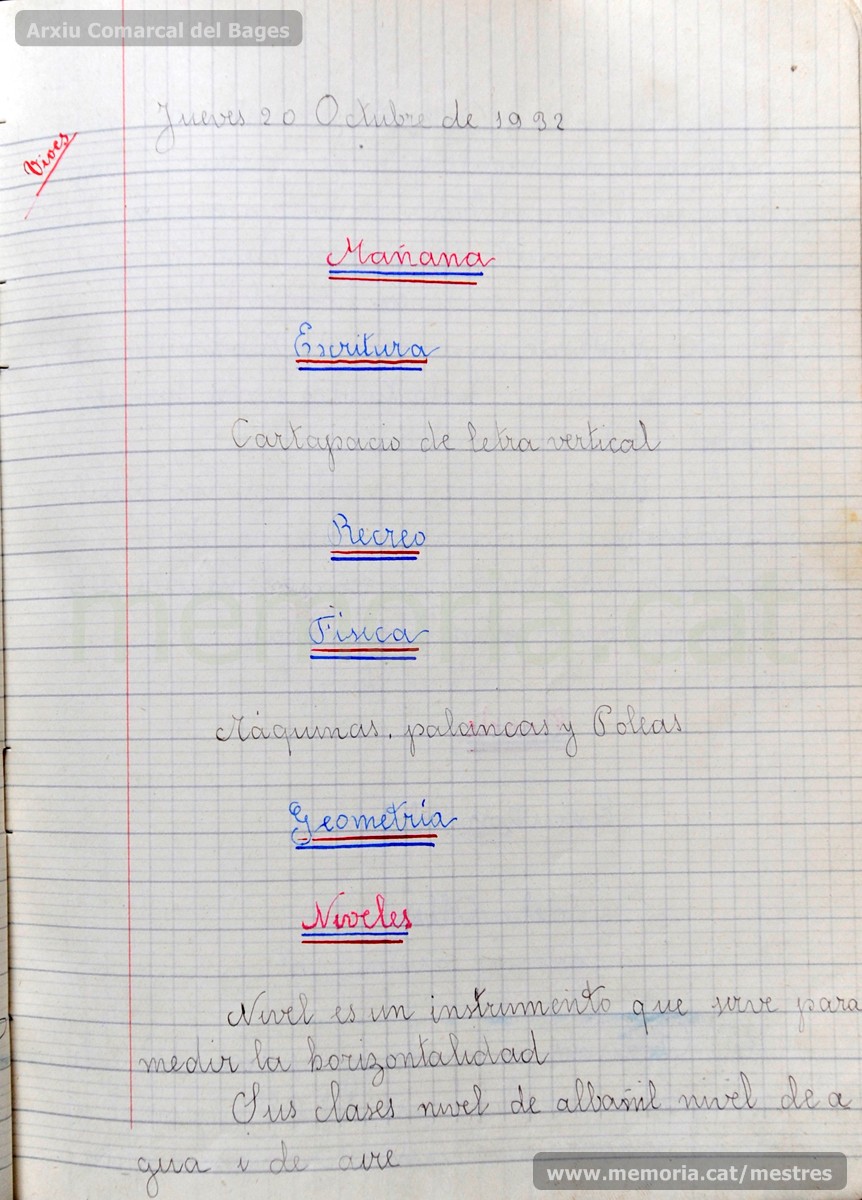 Arxiu Comarcal del Bages
Jueves 20 Octubre de 1932
Vives
Mañana
Escritura
Cartapacio de letra vertical
Recreo
memoria.cat
Física
Máquinas. palancas y Poleas
Geometría
Niveles
Nivel es un instrumento que sirve para
medir la horizontalidad
Sus clases nivel de albañil nivel de a
gua i de aire
www.memoria.cat/mestres